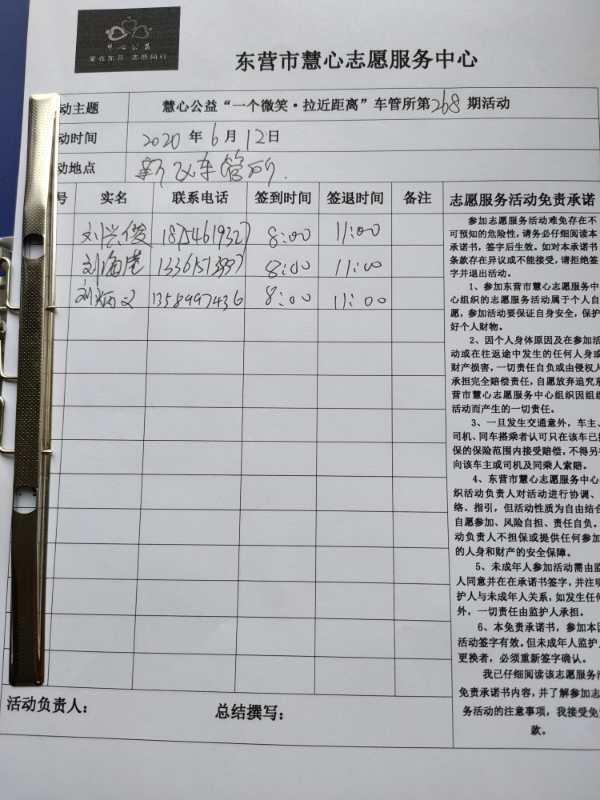 慧心公益
爱在东营 志愿同行
东营市慧心志愿服务中心
动主题 慧心公益“一个微笑·拉近距离”车管所第268期活动
动时间 2020年6月12日
动地点 新区车管所.
号 实名 联系电话 签到时间 签退时间 备注 志愿服务活动免责承诺
刘兴俊 8:00 11:00
刘海港 8:00 11:00
刘炳文 8:00 11:00
参加志愿服务活动难免存在不
可预知的危险性，请务必仔细阅读本
承诺书，签字后生效。如对本承诺书
条款存在异议或不能接受，请拒绝签
字并退出活动。
1、参加东营市慧心志愿服务中
心组织的志愿服务活动属于个人自
愿，参加活动要保证自身安全，保护
好个人财物。
2、因个人身体原因及在参加活
动或在往返途中发生的任何人身或
财产损害，一切责任自负或由侵权人
承担完全赔偿责任，自愿放弃追究东
营市慧心志愿服务中心组织因组织
活动而产生的一切责任。
3、一旦发生交通意外，车主、
司机、同车搭乘者认可只在该车已投
保的保险范围内接受赔偿，不得另行
向该车主或司机及同乘人索赔。
4、东营市慧心志愿服务中心
织活动负责人对活动进行协调、
络、指引，但活动性质为自由结合
自愿参加、风险自担、责任自负。
动负责人不担保或提供任何参加
的人身和财产的安全保障。
5、未成年人参加活动需由监
人同意并在在承诺书签字，并注明
护人与未成年人关系，如发生任何
外，一切责任由监护人承担。
6、本免责承诺书，参加本因
活动签字有效。但未成年人监护人
更换者，必须重新签字确认。
我已仔细阅读该志愿服务活
免责承诺书内容，并了解参加志
务活动的注意事项，我接受免
款。
活动负责人： 总结撰写：